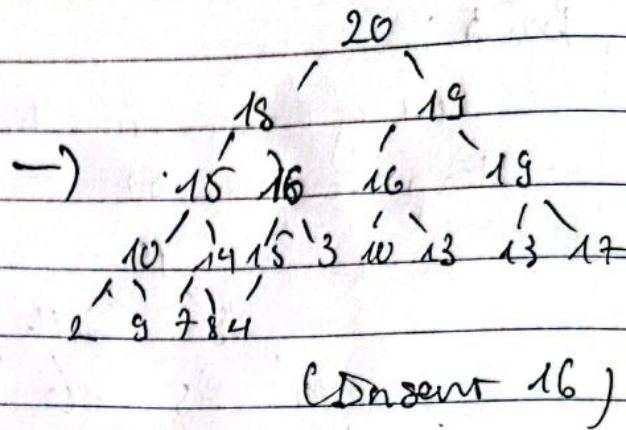 20
18 19
→ 15 16 16 19
10 14 15 3 10 13 13 17
2 9 7 8 4
(Insert 16)